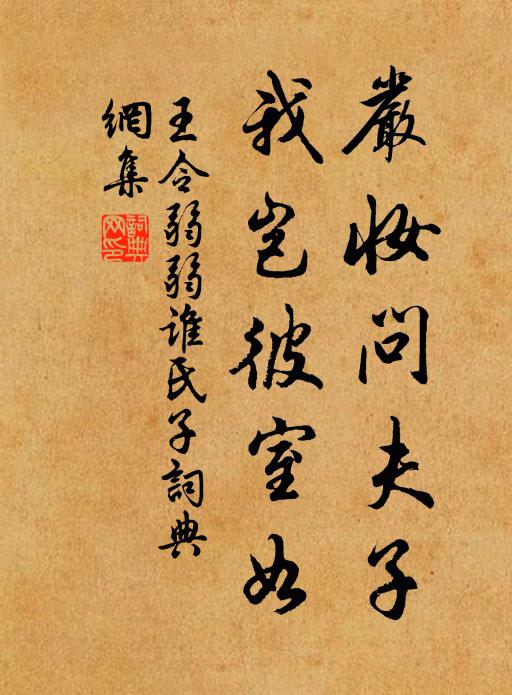 嚴妝問夫子
我豈彼室如
王令弱弱誰氏子詞典
網集
詞典網印